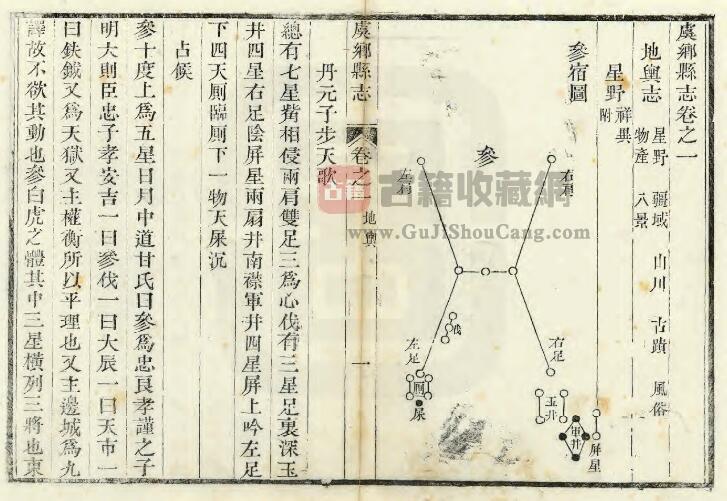 虞鄉縣志卷之一
地輿志 星野 疆域 山川 古蹟 風俗
物產 八景
星野 祥異附
參宿圖
參
右肩
左肩
伐
右足
左足
厠
屎
玉井
軍井
屏星
虞鄉縣志
卷之一
地輿
一
丹元子步天歌
總有七星觜相侵兩肩雙足三爲心伐有三星足裏深玉
井四星右足陰屏星兩扇井南襟軍井四星屏上吟左足
下四天厠臨厠下一物天屎沉
占候
參十度上爲五星日月中道甘氏曰參爲忠良孝謹之子
明大則臣忠子孝安吉一曰參伐一曰大辰一曰天市一
曰鈇鉞又爲天獄又主權衡所以平理也又主邊城爲九
譯故不欲其動也參白虎之體其中三星橫列三將也東
古籍
古籍收藏網
www.GuJiShouCang.com